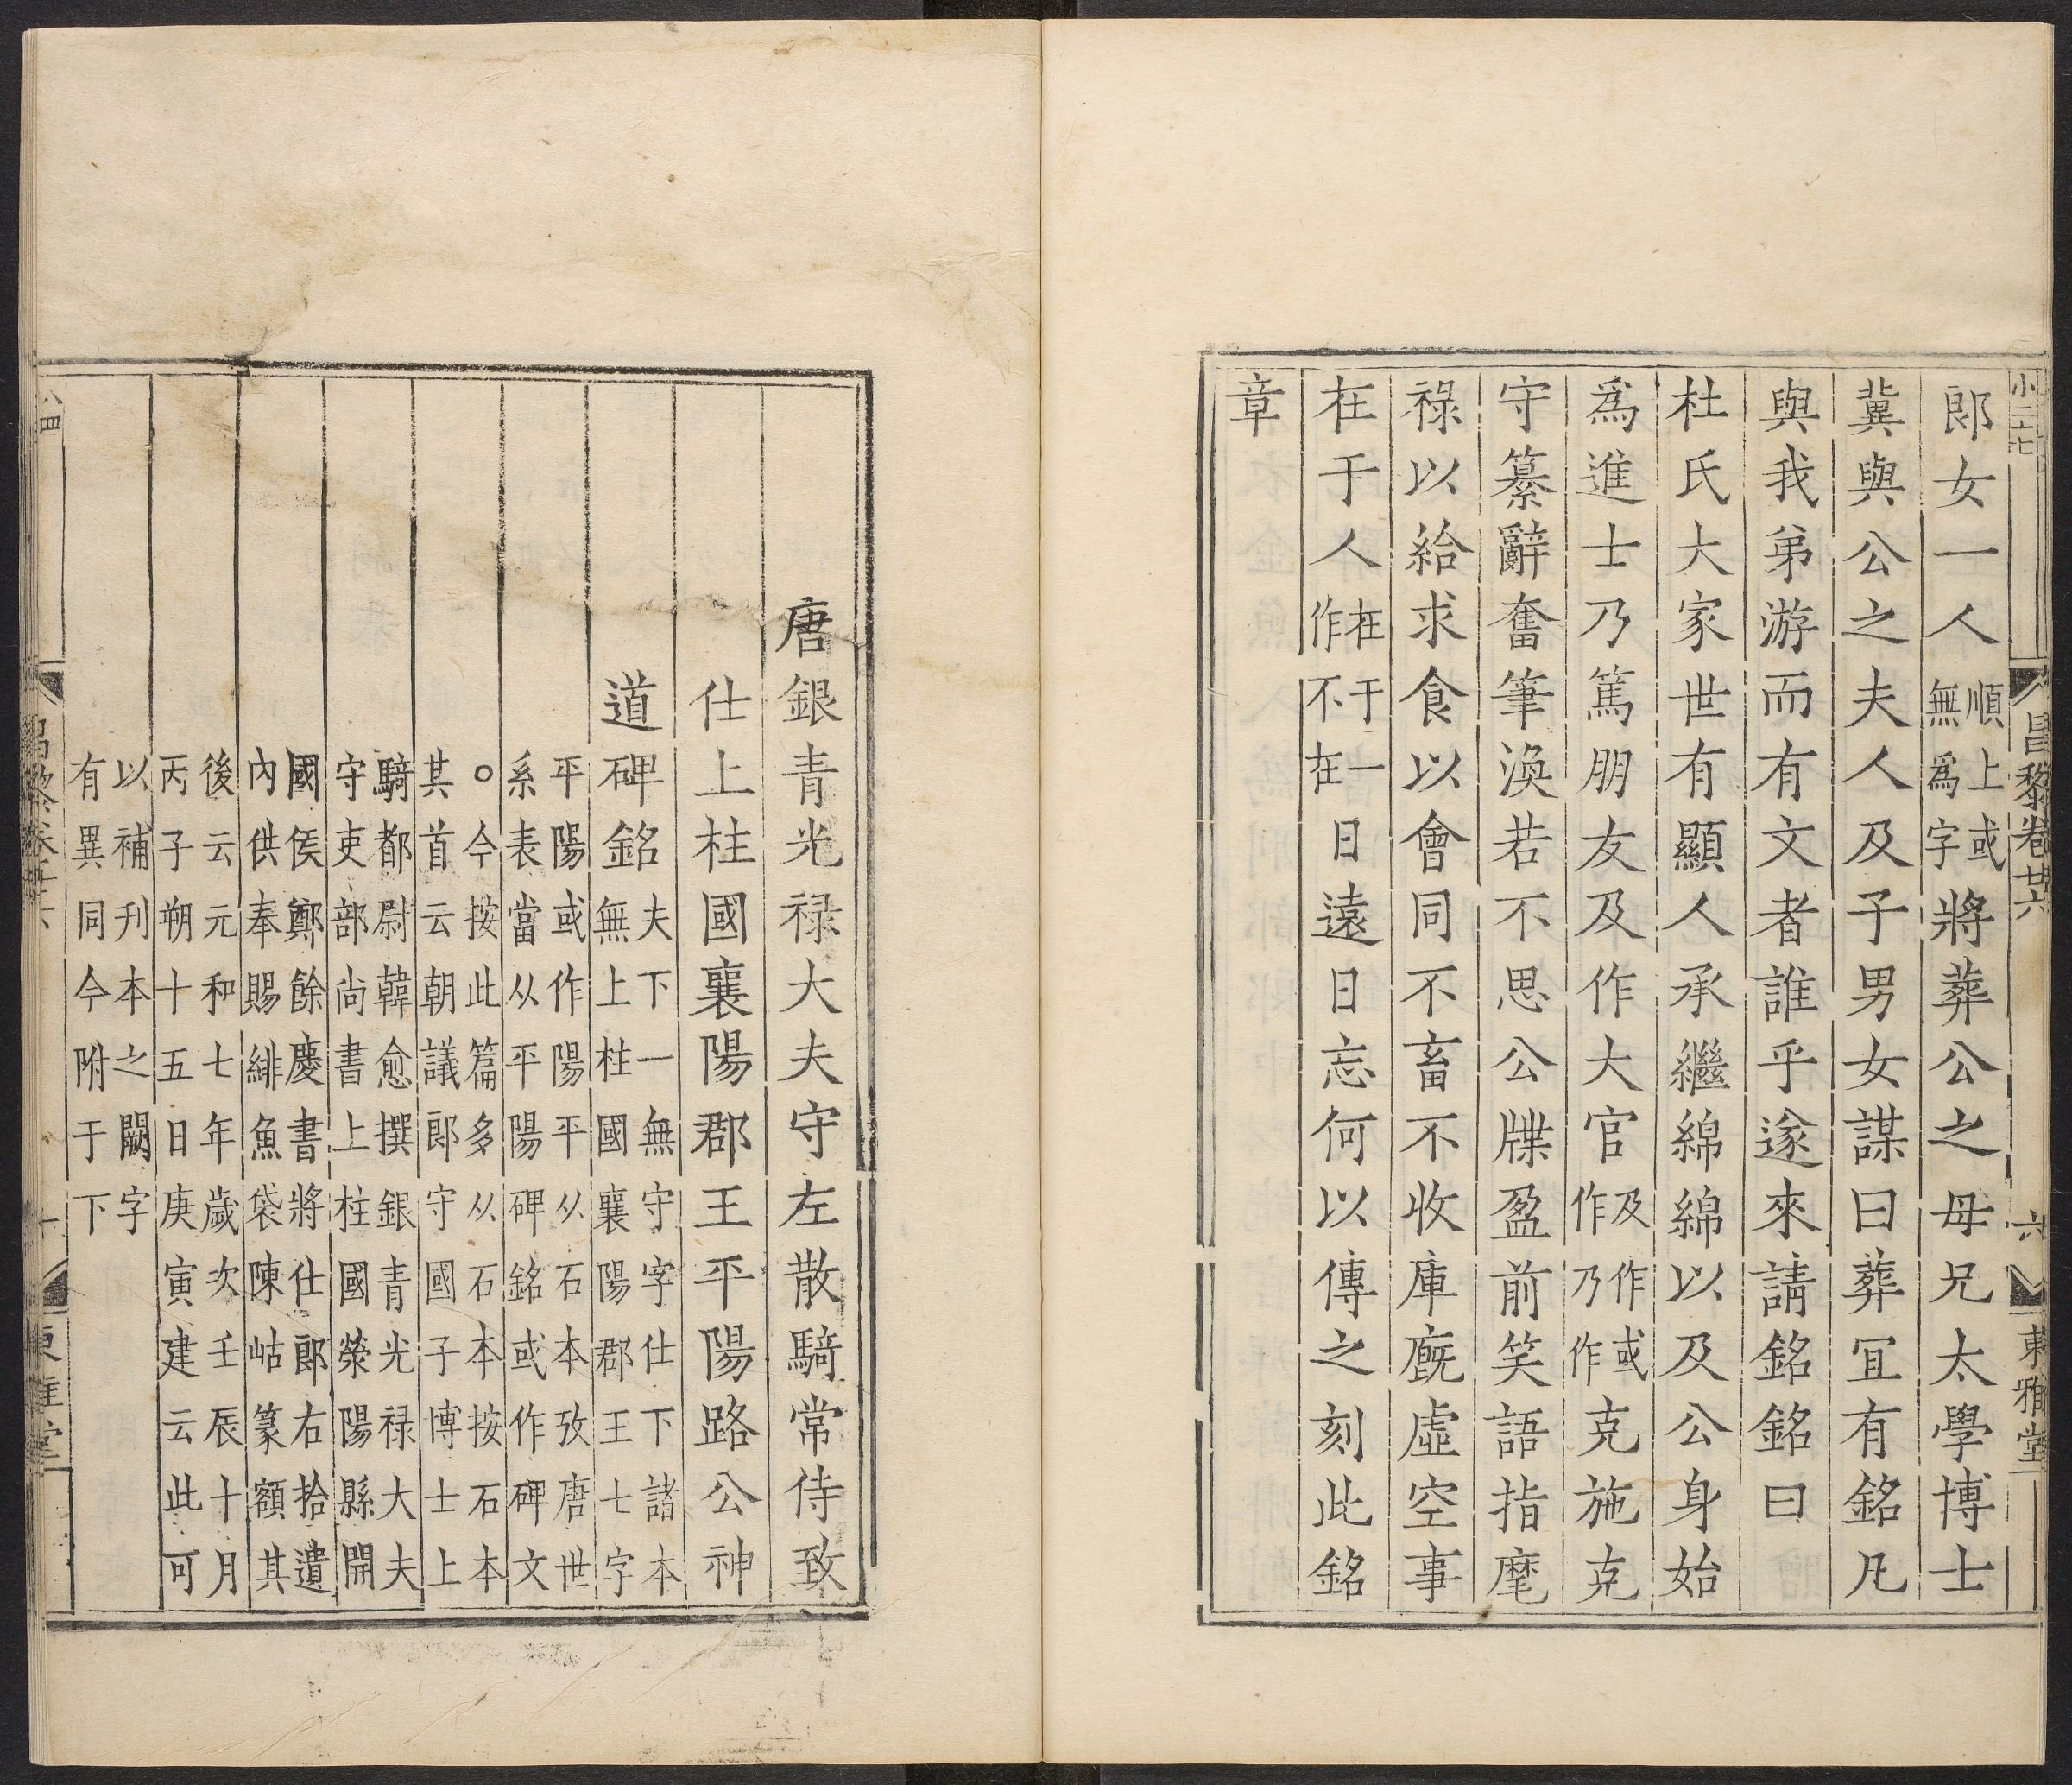 小二十七
昌黎卷廿六
六
東雅堂
郎女一人順上或無爲字將葬公之母兄太學博士
冀與公之夫人及子男女謀曰葬冝有銘凡
與我弟游而有文者誰乎遂來請銘銘曰
杜氏大家世有顯人承繼綿綿以及公身始
爲進士乃篤朋友及作大官及作或作乃作克施克
守纂辭奮筆渙若不思公牒盈前笑語指麾
祿以給求食以會同不畜不收庫廐虛空事
在于人在于一作不在日遠日忘何以傳之刻此銘
章
唐銀青光祿大夫守左散騎常侍致
仕上柱國襄陽郡王平陽路公神
道碑銘夫下一無守字仕下諸本無上柱國襄陽郡王七字
平陽或作陽平从石本攷唐世
系表當从平陽碑銘或作碑文
○今按此篇多从石本按石本
其首云朝議郎守國子博士上
騎都尉韓愈撰銀青光祿大夫
守吏部尚書上柱國滎陽縣開
國侯鄭餘慶書將仕郎右拾遺
內供奉賜緋魚袋陳岵篆額其
後云元和七年歲次壬辰十月
丙子朔十五日庚寅建云此可
以補刋本之闕字
有異同今附于下
昌黎卷廿六
東雅堂